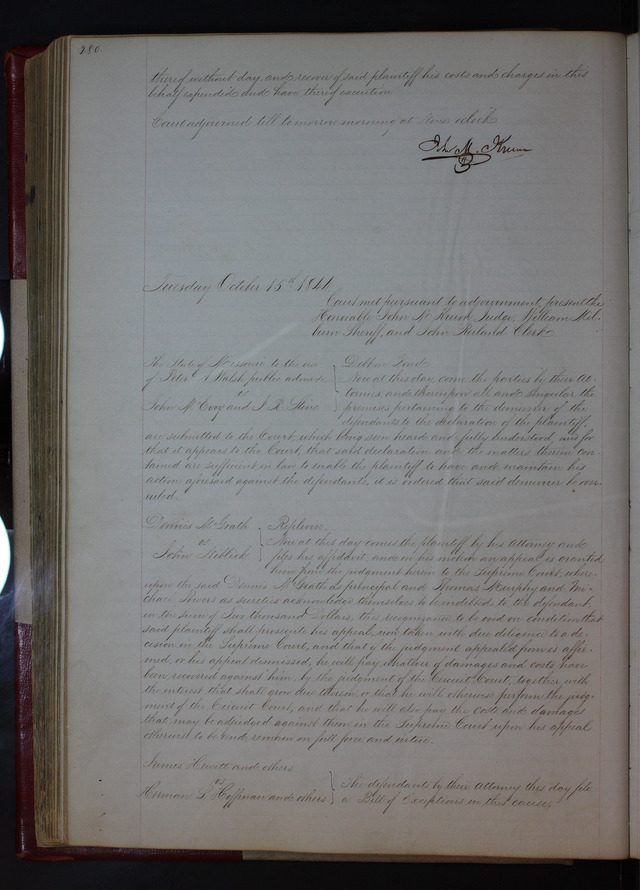 280.
thereof without day, and recover of said plaintiff his costs and charges in this
behalf expended and have thereof execution
Court adjourned till tomorrow morning at o'clock
John M. Krum
Tuesday October 15th 1844
Court met pursuant to adjournment, present the
Honorable John M Krum Judge, William Mil-
burn Sheriff, and John Ruland Clerk
The State of Missouri to the use
of Peter A Walsh public admr
vs
John Mc Evoy and
Debt on Bond
Now at this day come the parties by their At-
tornies and thereupon all and singular the
premises pertaining to the demurrer of the
defendants to the declaration of the plaintiff,
are submitted to the Court, which being seen heard and fully understood, and for
that it appears to the Court, that said declaration and the matters therein con-
tained are sufficient in law to enable the plaintiff to have and maintain his
action aforesaid against the defendants, it is ordered that said demurrer be over-
ruled.
Dennis Mc Grath
vs
John
Replevin
Now at this day comes the plaintiff by his Attorney and
files his affidavit and on his motion an appeal is granted
him from the judgment herein to the Supreme Court, where-
upon the said Dennis Mc Grath as principal and Thomas Murphy and Mi-
chael Powers as sureties acknowledge themselves to be indebted to the defendant,
in the sum of Two thousand Dollars, this recognizance to be void on condition that
said plaintiff shall prosecute his appeal now taken with due diligence to a de-
cision in the Supreme Court, and that if the judgment appeal'd from is affir-
med, or his appeal dismissed, he will pay whatever of damages and costs have
been recovered against him by the judgment of the Circuit Court, together with
the interest that shall grow due thereon, or that he will otherwise perform the judg-
ment of the Circuit Court, and that he will also pay the costs and damages
that may be adjudged against them in the Supreme Court upon his appeal
otherwise to be and remain in full force and virtue.
James Hewitt and others
vs
Herman L Hoffman and others
The defendants by their Attorney this day file
a Bill of Exceptions in this cause,